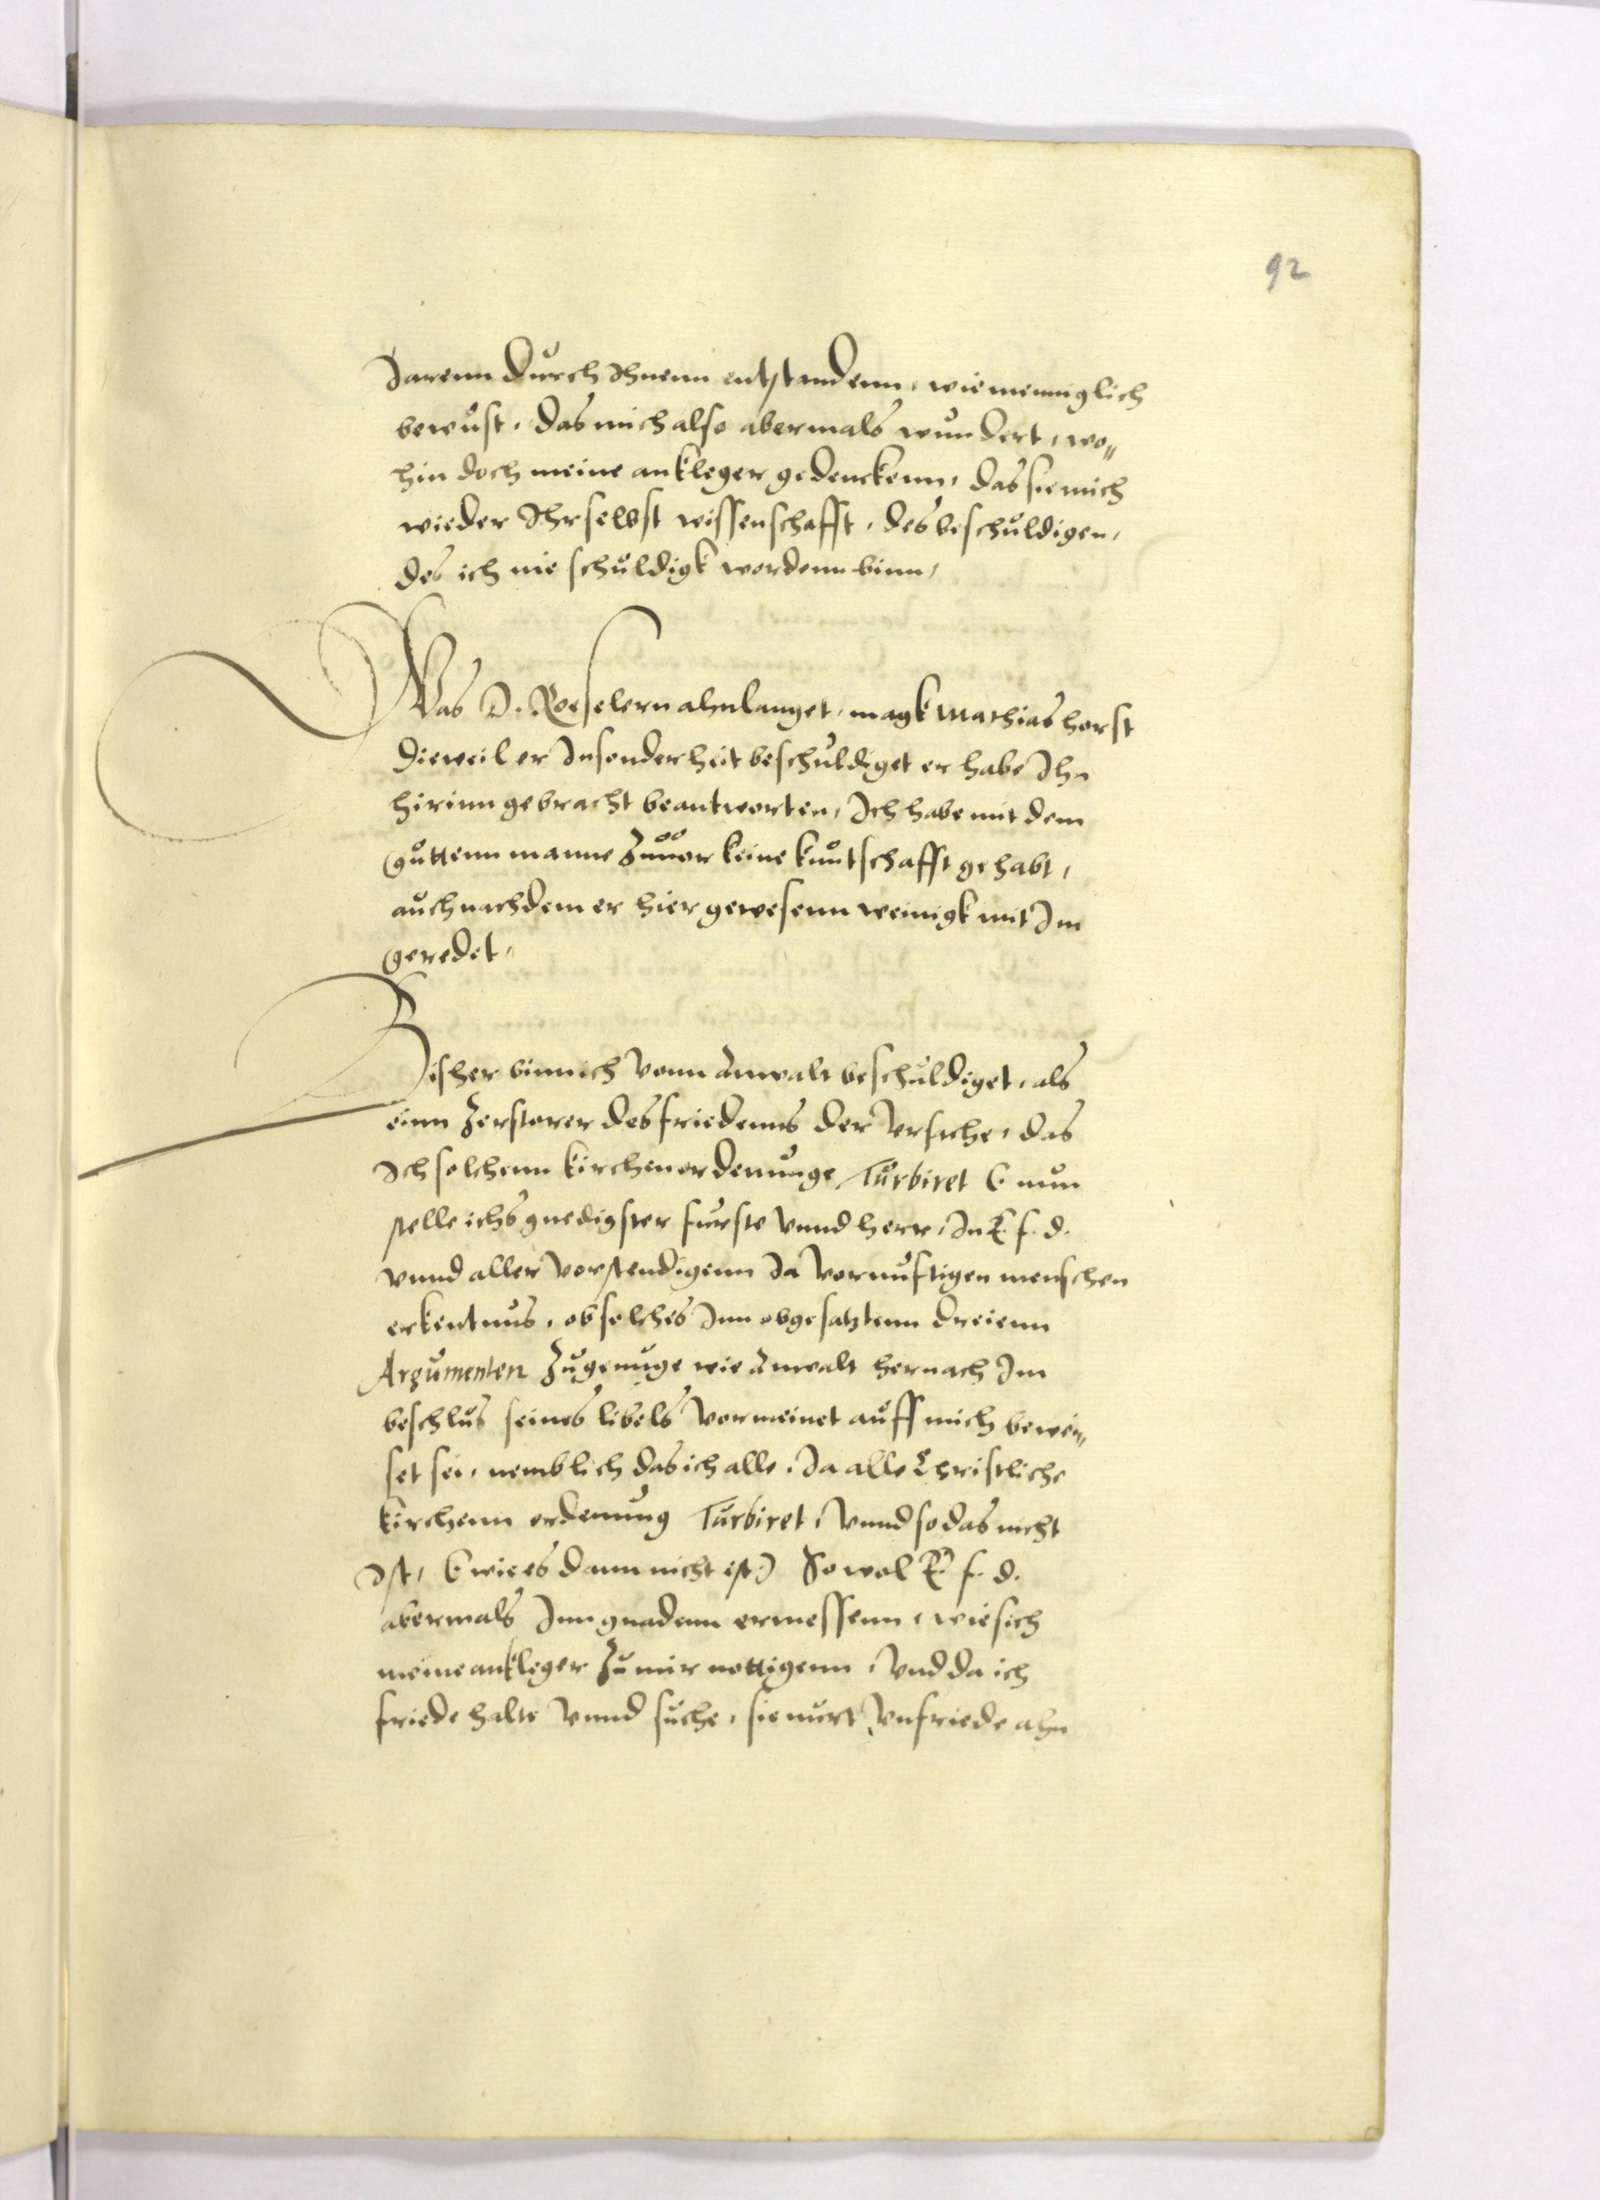 92
Jarenn durch Ihnenn entstandenn, wie menniglich
bewust, das mich also abermals wundert, wo„
hin doch meine ankleger gedenckenn, das sie mich
wieder Ihr selbst wissenschafft, des beschuldigen,
des ich nie schuldigk wordenn binn,
Was D. Roeselern ahnlanget, magk Mathias horst
dieweil er Insonderheit beschuldiget er habe Ihn
hirinn gebracht beantworten, Ich habe mit dem
guttenn manne zuuor keine kuntschafft gehabt,
auch nachdem er hier gewesenn weinigk mit Im
geredet,
Bisher binn ich vonn Anwalt beschuldiget, als
einn Zerstorer des friedenns der vrsache, das
Ich solchenn kirchenordenunge Turbiret (nun
stelle ichs gnedigster furste vnnd herr, In E. f. d.
vnnd aller vorstendigenn Ja vornuftigen menschen
erkentnus, ob solches Inn obgesatztenn dreienn
Argumenten zugenuge wie Anwalt hernach Im
beschlus seines libels vormeinet auff mich bewei„
set sei, nemblich das ich alle, Ja alle Christliche
kirchenn ordenung Turbiret, vnnd so das nicht
Ist, (wie es dann nicht ist) So wol E. f. d.
abermals Inn gnadenn ermessenn, wie sich
meine ankleger zu mir nottigenn, vnd da ich
friede halte vnnd suche, sie nurt vnfriede ahn